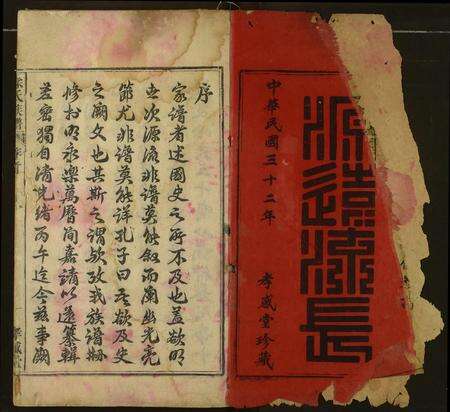 源遠流長
中華民國三十二年
孝感堂珍藏
序
家譜者述國史之所不及也蓋欲明
世次源流非譜莫能叙而闡幽光亮
節尤非譜莫能詳孔子曰吾欲及史
之闕文也其斯之謂歟攷我族譜昉
修於明永樂萬曆間嘉請以還纂輯
差密獨自清光緒丙午迄今茲事闕
氏族譜